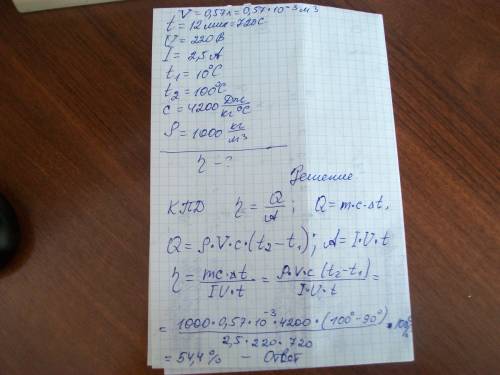 V = 0,57л = 0,57·10⁻³ м³
t = 12 мин = 720 С
U = 220 В
I = 2,5 А
t₁ = 10°С
t₂ = 100°С
c = 4200 Дж/кг°С
ρ = 1000 кг/м³
η - ?
Решение
КПД η = Q/A ; Q = m·c·Δt,
Q = ρ·V·c·(t₂-t₁); A = I·U·t
η = mc·Δt/IU·t = ρ·V·c(t₂-t₁)/I·U·t =
= 1000·0,57·10⁻³·4200·(100°-90°)/2,5·220·720 · 100%
= 54,4% - Ответ